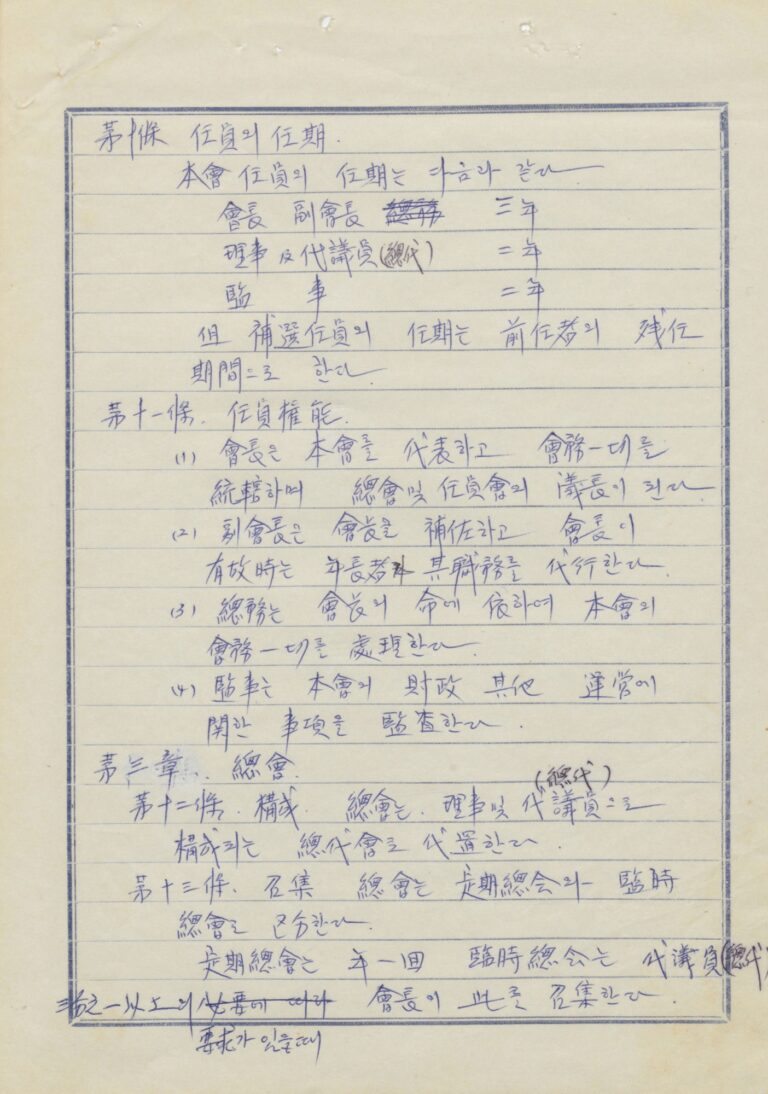 第十條 任員의 任期.
本會 任員의 任期는 다음과 같다
會長 副會長 總務 三年
理事 及 代議員(總代) 二年
監 事 二年
但 補選任員의 任期는 前任者의 残任
期間으로 한다.
第十一條. 任員權能.
(1) 會長은 本會를 代表하고 會務一切를
統轄하며 總會 및 任員會의 議長이 된다.
(2) 副會長은 會長을 補佐하고 會長이
有故時는 年長者가 其職務를 代行한다.
(3) 總務는 會長의 命에 依하여 本會의
會務一切를 處理한다.
(4) 監事는 本會의 財政 其他 運営에
関한 事項을 監査한다.
第三章. 總會.
(總代)
第十二條. 構成. 總會는. 理事 및 代議員으로
構成되는 總代會로 代置한다.
第十三條. 召集 總會는 定期總会와 臨時
總會로 区分한다.
定期總會는 年一回 臨時總会는 代議員(總代)
三分之一以上의 必要에 따라 會長이 此를 召集한다.
要求가 있을때